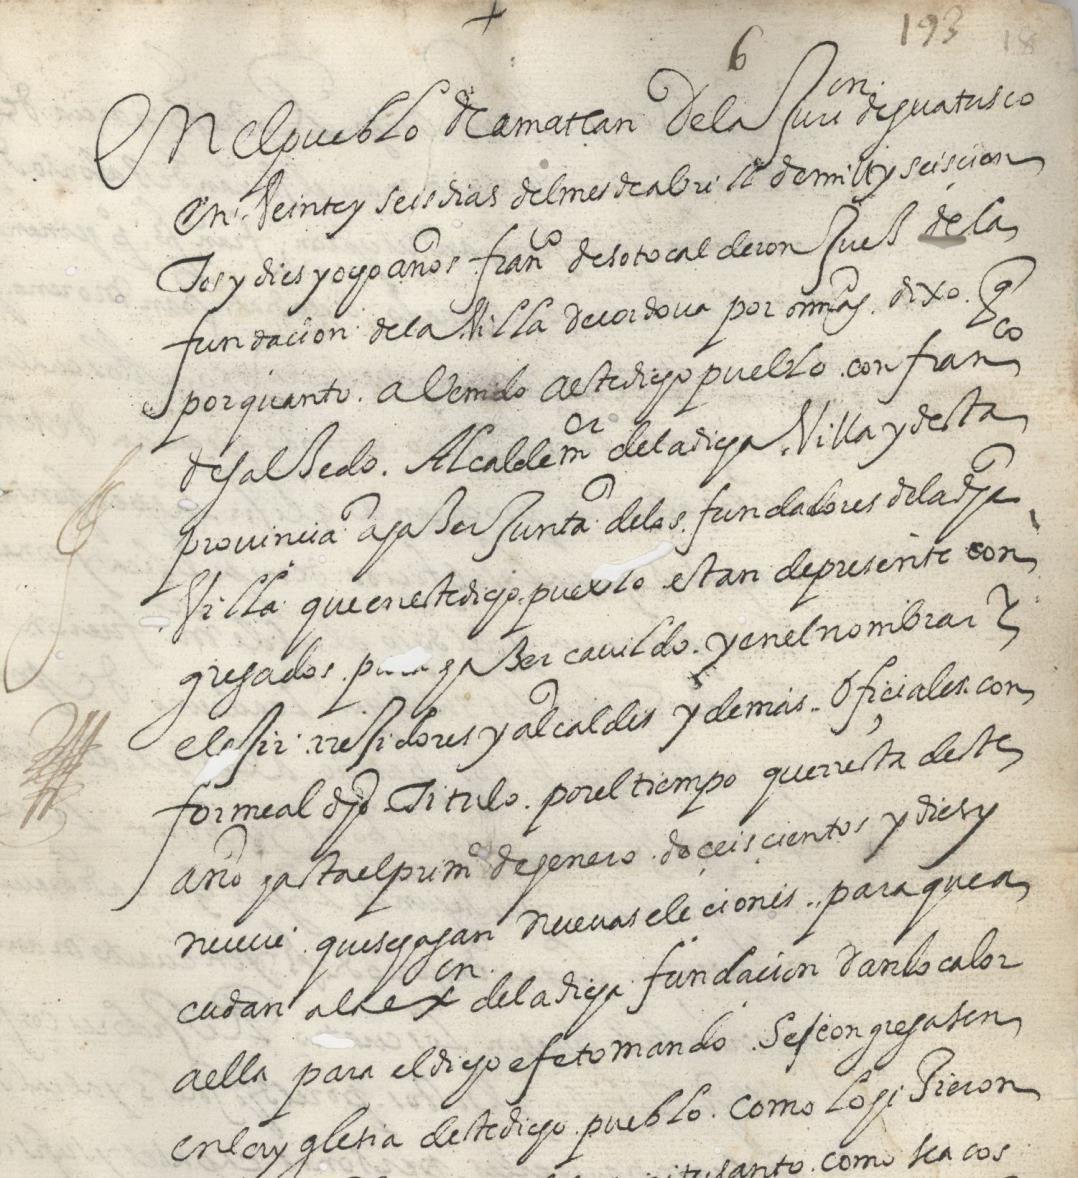 193 18
6
En el pueblo de amatlan De la Juri on de guatusco
En Veinte y seis dias del mes de abrill de mill y seiscien
Tos y dies y ocho años fran co de soto calderon Jues de la
fundacion de la Villa de cordova por su mag. dixo. q
por quanto. a Venido a este dicho pueblo. con fran co
de Salsedo. Alcalde m or de la dicha Villa y desta
provincia a haser Junta de los fundadores de la dha
Villa que en este dicho pueblo estan de presente con
gregados para haser cavildo. y en el nombrar y
elegir rregidores y alcaldes y demas oficiales con
forme al dho Titulo. por el tiempo que rresta deste
año hasta el prim o de henero do ceiscientos y dies y
nueve que se hagan nuevas eleciones. para que a
cudan a la ex on de la dicha fundacion dando calor
a ella para el dicho efeto mando Se congregasen
en la yglesia deste dicho pueblo. como lo hisieron
santo como sea cos